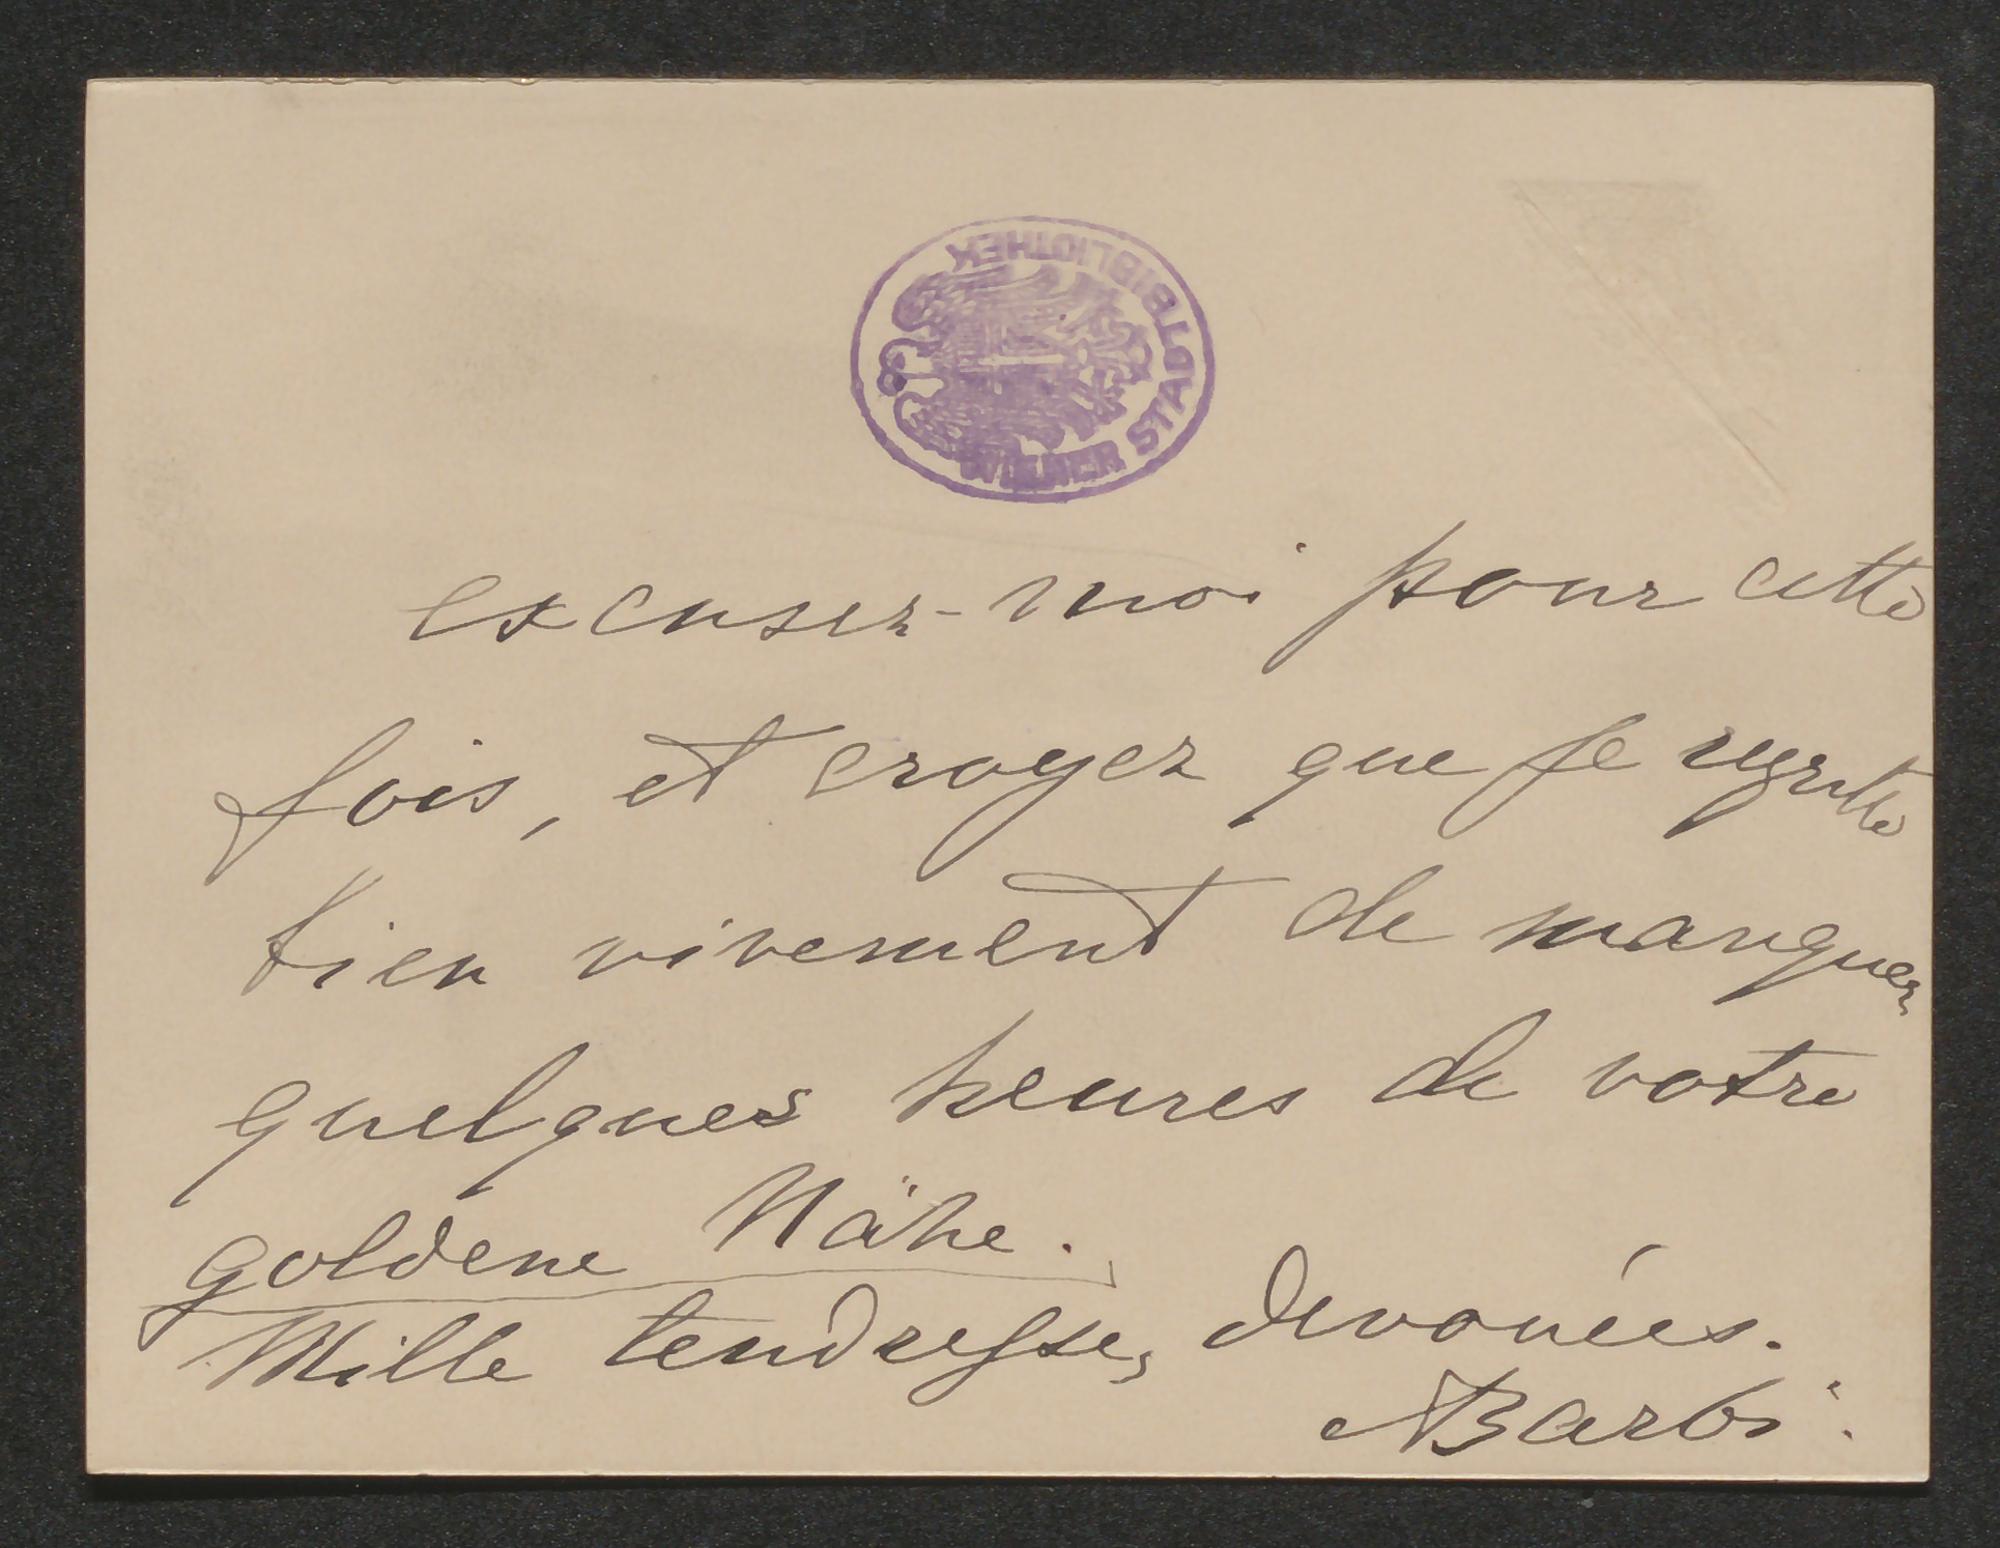 WIENER STADTBIBLIOTHEK
excusez-moi pour cette
fois, et croyez que je regrette
bien vivement de manquer
quelques heures de votre
goldene Nähe.
Mille tendresses devouées.
ABarbi.